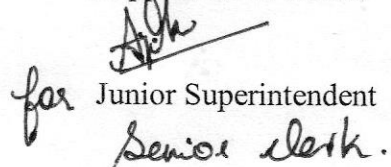 for Junior Superintendent
Senior Clerk.